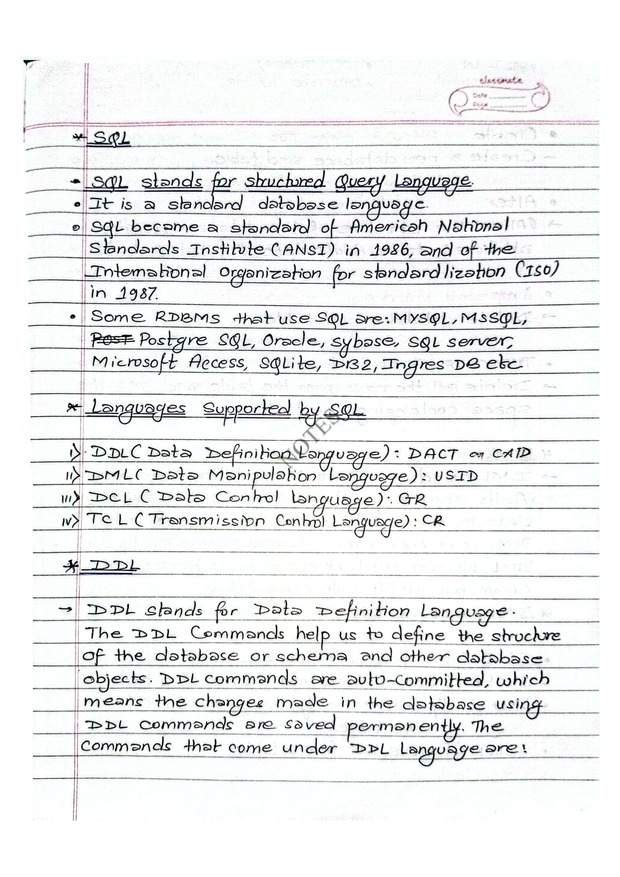 classmate
Date
Page
* SQL
- SQL stands for structured Query Language.
• It is a standard database language.
• SQL became a standard of American National
Standards Institute (ANSI) in 1986, and of the
International Organization for standardlization (ISO)
in 1987.
• Some RDBMS that use SQL are: MYSQL, MSSQL,
Post Postgre SQL, Oracle, sybase, SQL server,
Microsoft Access, SQLite, DB2, Ingres DB etc
* Languages Supported by SQL
NOTES
i> DDL (Data Definition Language): DACT or CATD
ii> DML (Data Manipulation Language): USID
iii> DCL (Data Control language): GR
iv> TCL (Transmission Control Language): CR
* DDL
→ DDL stands for Data Definition Language.
The DDL Commands help us to define the structure
of the database or schema and other database
objects. DDL commands are auto-committed, which
means the changes made in the database using
DDL commands are saved permanently. The
Commands that come under DDL Language are: